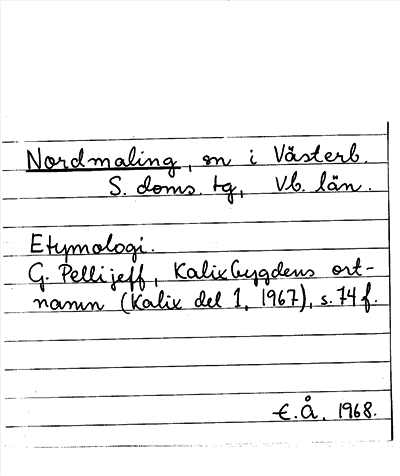 Nordmaling, sn i Västerb.
S. doms. tg, Vb. län.
Etymologi.
G. Pellijeff, Kalixbygdens ort-
namn (Kalix del 1, 1967), s. 74 f.
E.Å. 1968.